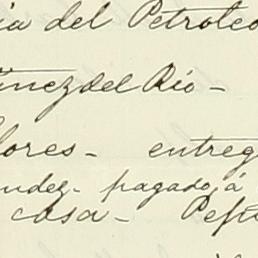 ia del Petroleo
ínez del Rio -
lores - entreg
ndez - pagado, á
casa -